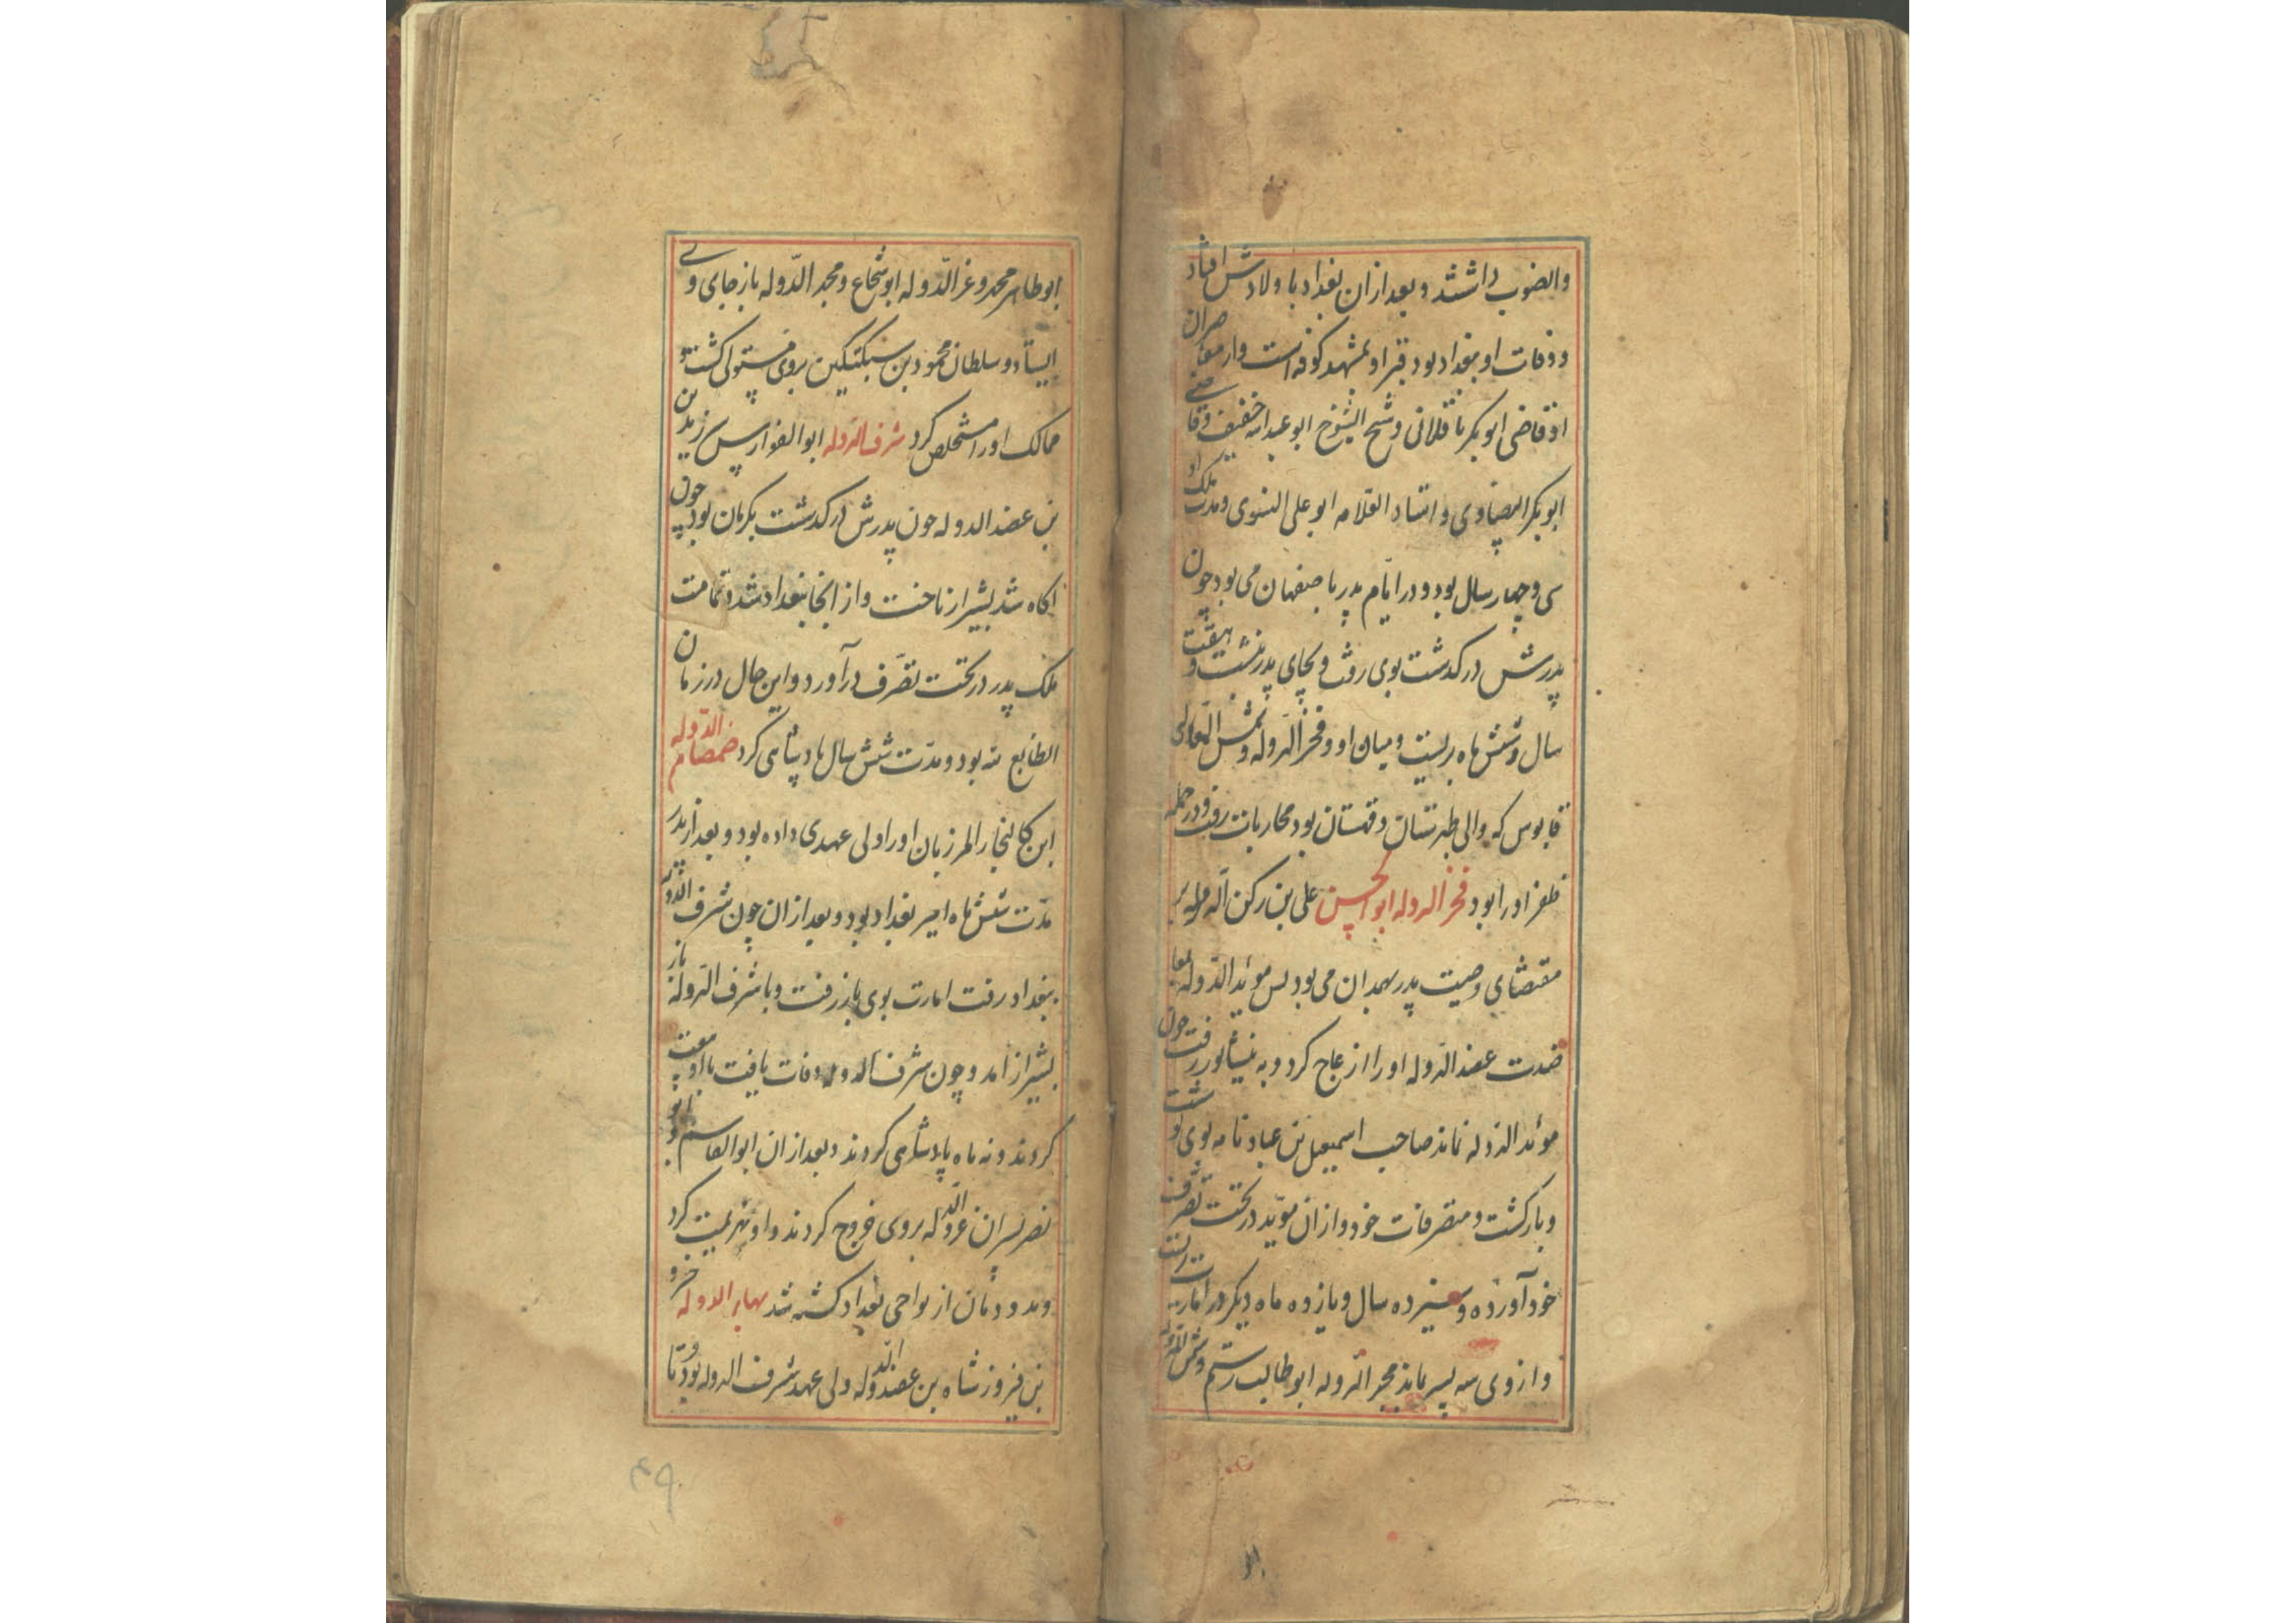 والضوب داشتند و بعد ازان بغداد با ولادش افتاد
و وفات او ببغداد بود و قبر او بمشهد کوفه است و از معاصران
او قاضی ابوبکر باقلانی و شیخ الشیوخ ابو عبدالله خفیف و قاضی
ابوبکر البیضاوی و استاد العلامه ابو علی النسوی و مدت ملک او
سی و چهار سال بود و در ایام پدر باصفهان می بود چون
پدرش درکذشت بوی رفت و بجای پدر بنشست و هفت
سال و شش ماه بزیست و میان او و فخر الدوله و شمس المعالی
قابوس که والی طبرستان و قهستان بود محاربات رفت و در جمله
ظفر او را بود فخر الدوله ابو الحسن علی بن رکن الدوله بر
مقتضای وصیت پدر بهمدان می بود پس موئد الدوله بمعا
ضدت عضد الدوله او را ازعاج کرد و به نیشابور رفت چون
موئد الدوله نماند صاحب اسمعیل بن عباد نامه بوی نوشت
و بازکشت و متصرفات خود و ازان موید در تحت تصرف
خود آورده و سیزده سال و یازده ماه دیکر در امارت بزیست
و از وی سه پسر ماند مجد الدوله ابو طالب رستم و شمس الدوله
ابو طاهر محمد و عز الدوله ابو شجاع و مجد الدوله باز جای وی
ایستاد و سلطان محمود بن سبکتکین بروی مستولی کشت و
ممالک او را مستخلص کرد شرف الدوله ابو الفوارس زیدن
بن عضد الدوله چون پدرش درکدشت بکرمان بود چون
اکاه شد بشیراز تاخت و از انجا ببغداد شد و تمامت
ملک پدر در تحت تصرف درآورد و این حال در زمان
الطایع لله بود و مدت شش سال پادشاهی کرد صمصام الدوله
ابن کالنجار المرزبان او را ولی عهدی داده بود و بعد از پدر
مدت شش ماه امیر بغداد بود و بعد ازان چون شرف الدوله
ببغداد رفت امارت بوی باز رفت و با شرف الدوله باز
بشیراز امد و چون شرف الدوله وفات یافت با او بیعت
کردند و نه ماه پادشاهی کردند و بعد ازان ابو القاسم و ابو
نصر پسران عز الدوله بروی خروج کردند و او هزیمت کرد
و بدو دمان از نواحی بغداد کشته شد بهاء الدوله خسرو
بن فیروز شاه بن عضد الدوله ولی عهد شرف الدوله بود و تا
۴۹